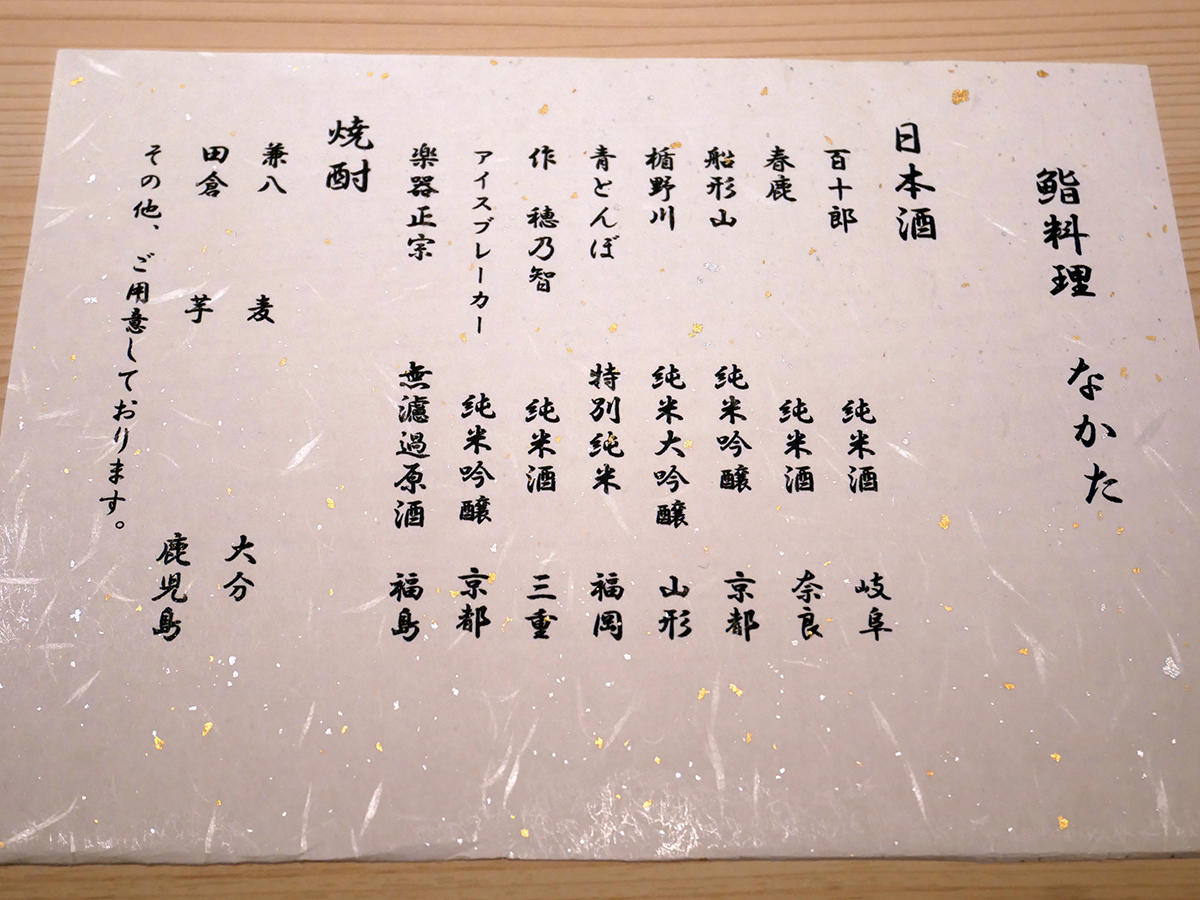 鮨料理 なかた
日本酒
百十郎 純米酒 岐阜
春鹿 純米酒 奈良
船形山 純米吟醸 京都
楯野川 純米大吟醸 山形
青とんぼ 特別純米 福岡
作 穂乃智 純米酒 三重
アイスブレーカー 純米吟醸 京都
楽器正宗 無濾過原酒 福島
焼酎
兼八 麦 大分
田倉 芋 鹿児島
その他、ご用意しております。